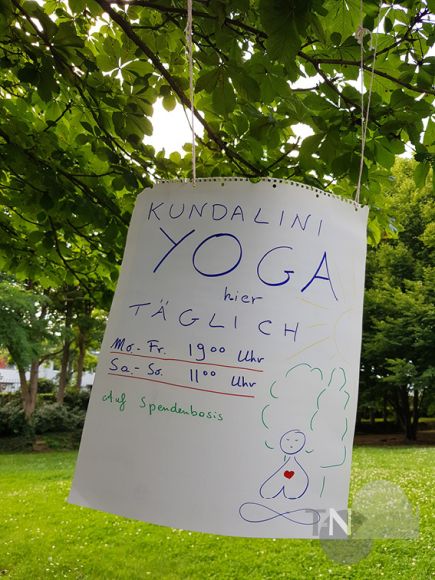 KUNDALINI
YOGA
hier
TÄGLICH
Mo.-Fr. 19⁰⁰ Uhr
Sa.-So. 11⁰⁰ Uhr
Auf Spendenbasis